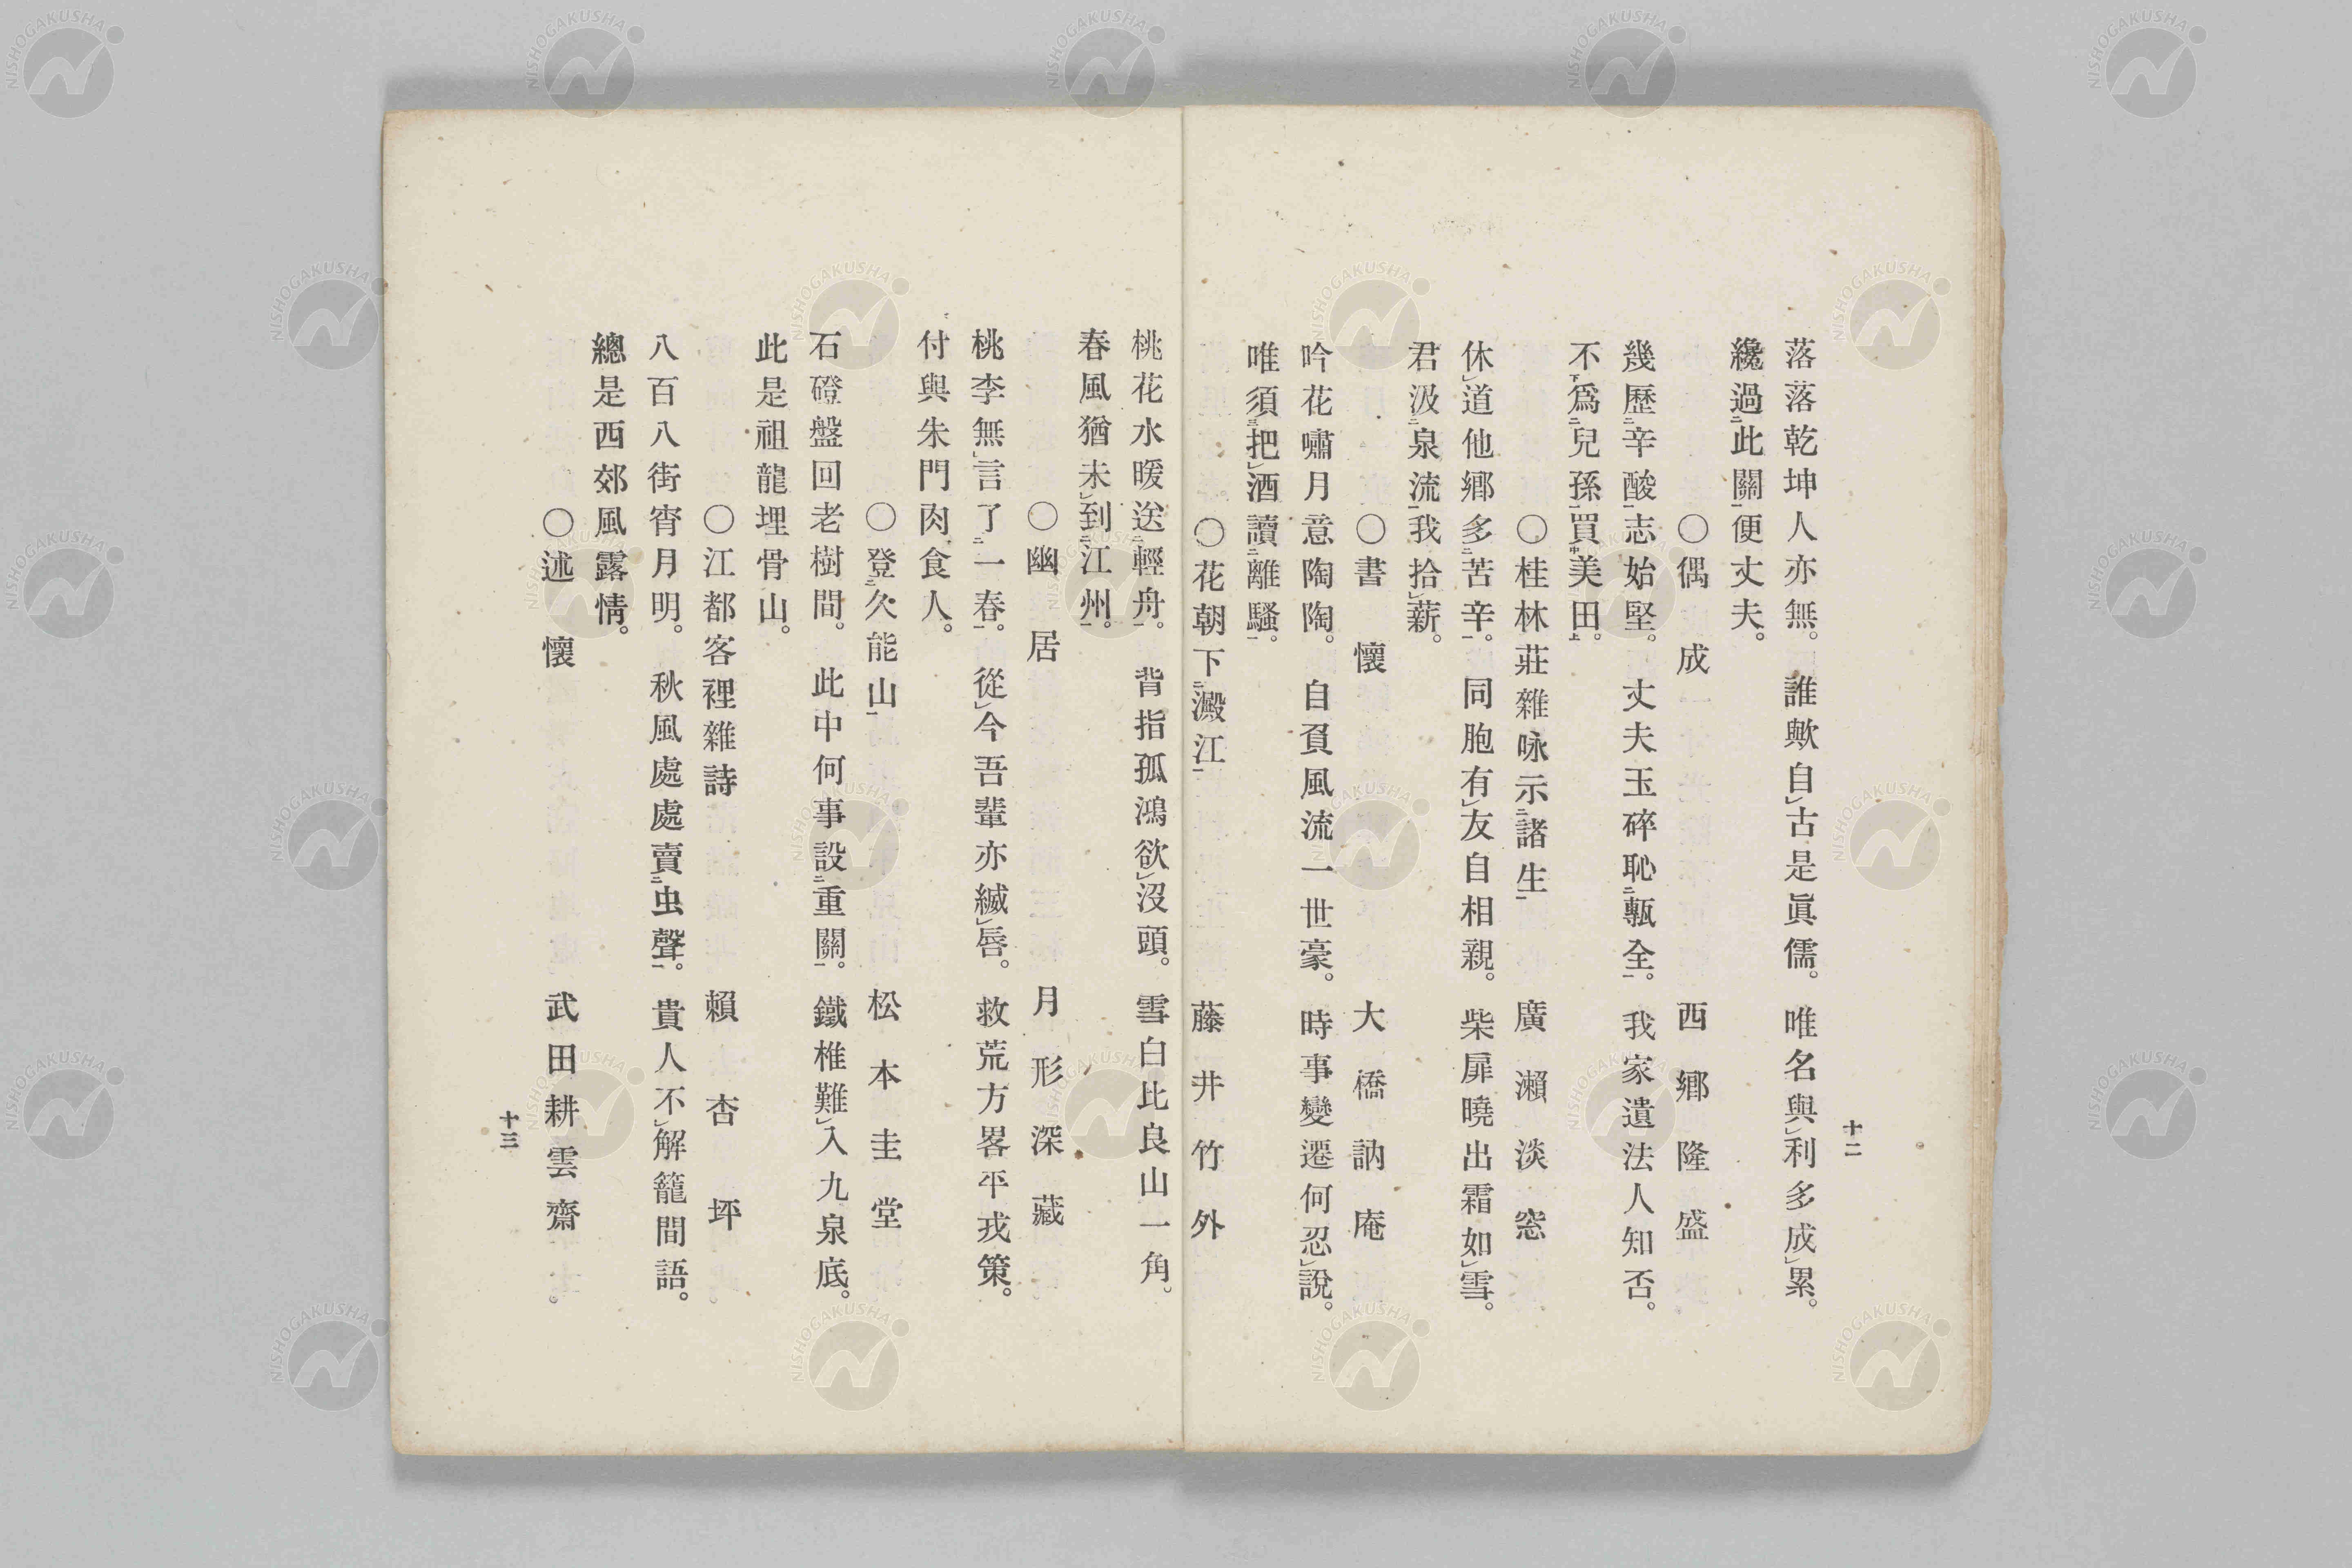 十二
落落乾坤人亦無。誰歟自レ古是眞儒。唯名與レ利多成レ累。
纔過二此關一便丈夫。
〇偶成 西鄉隆盛
幾歷二辛酸一志始堅。丈夫玉碎恥二甎全一。我家遺法人知否。
不下爲二兒孫一買中美田上。
〇桂林莊雜咏示二諸生一 廣瀨淡窓
休レ道他鄉多二苦辛一。同胞有レ友自相親。柴扉曉出霜如レ雪。
君汲二泉流一我拾レ薪。
〇書懷 大橋訥庵
吟花嘯月意陶陶。自負風流一世豪。時事變遷何忍レ說。
唯須三把レ酒讀二離騷一。
〇花朝下二澱江一 藤井竹外
桃花水暖送二輕舟一。背指孤鴻欲レ沒頭。雪白比良山一角。
春風猶未レ到二江州一。
〇幽居 月形深藏
桃李無レ言了二一春一。從レ今吾輩亦緘レ唇。救荒方畧平戎策。
付與朱門肉食人。
〇登二久能山一 松本圭堂
石磴盤回老樹間。此中何事設二重關一。鐵椎難レ入九泉底。
此是祖龍埋骨山。
〇江都客裡雜詩 賴杏坪
八百八街宵月明。秋風處處賣二虫聲一。貴人不レ解籠間語。
總是西郊風露情。
〇述懷 武田耕雲齋
十三
NISHOGAKUSHA